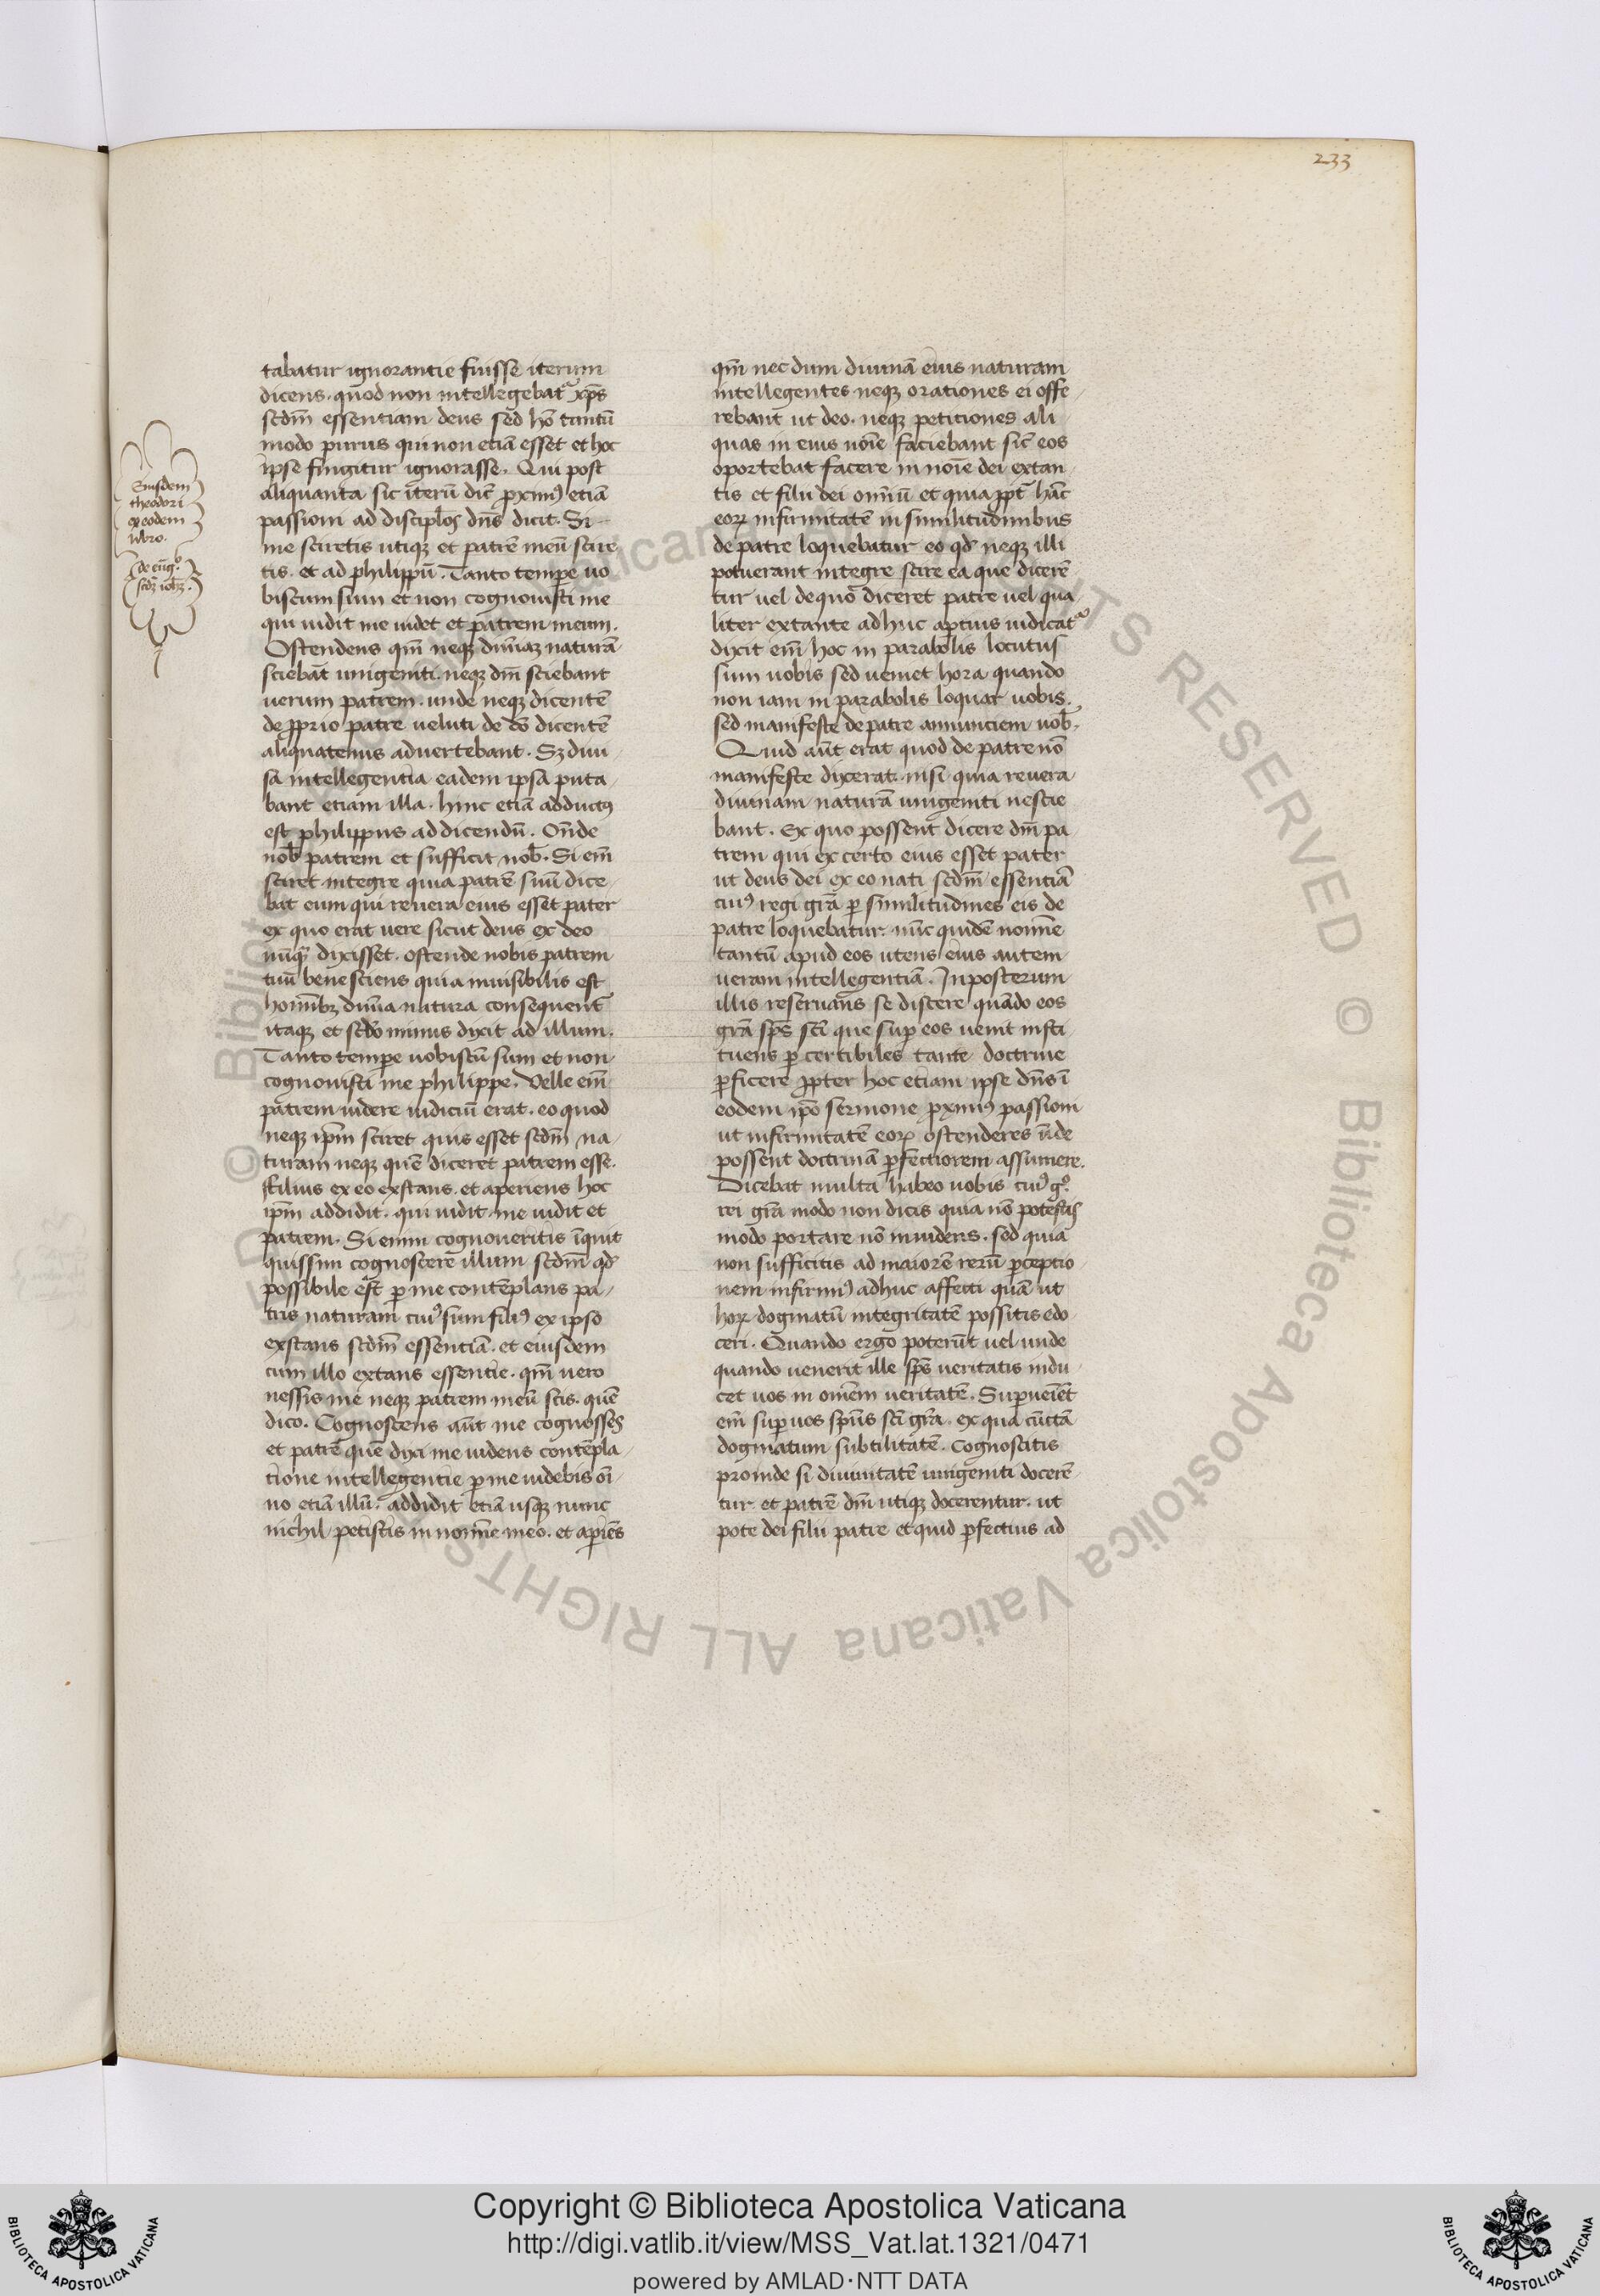 233
tabatur ignorantie fuisse iterum
dicens. quod non intellegebat᷑ xp̄s
scdm̄ essentiam deus sed hō tantū
modo purus qui non etiā esset et hoc
ipse fingitur ignorasse. Qui post
aliquanta sic iterū dic̄ pximꝰ etiā
passioni ad discipl̄os dn̄s dicit. Si
me sciretis utiqꝫ et patrē meū scire
tis. et ad philippū. Tanto tempe uo
biscum sum et non cognouisti me
qui uidit me uidet et patrem meum.
Ostendens qm̄ neqꝫ diuinaꝫ naturā
sciebāt unigeniti. neqꝫ dm̄ sciebant
uerum patrem. unde neqꝫ dicentē
de pprio patre ueluti de eo dicentē
aliquatenus aduertebant. Sꝫ diui
sa intellegentia eadem ipsā puta
bant etiam illa. hinc etiā adductꝰ
est philippus ad dicendū. On̄de
nob̄ patrem et sufficit nob̄. Si em̄
sciret integre quia patrē suū dice
bat eum qui reuera eius esset pater
ex quo erat uere sicut deus ex deo
nūqꝫ dixisset. ostende nobis patrem
tuū bene sciens quia inuisibilis est
hominibꝫ diuīa natura consequent᷑
itaqꝫ et scdo minus dixit ad illum.
Tanto tempe uobiscū sum et non
cognouisti me philippe. Velle em̄
patrem uidere iudiciū erat. eo quod
neqꝫ ipm̄ sciret quis esset scdm̄ na
turam neqꝫ quē diceret patrem esse.
Filius ex eo exstans. et aperiens hoc
ipm̄ addidit. qui uidit me uidit et
patrem. Si enim cognoueritis īquit
quis sim cognoscere illum scdm̄ qd̄
possibile est p me contēplans pa
tris naturam cuiꝰ sum filiꝰ ex ipso
exstans scdm̄ essentiā. et eiusdem
cum illo extans essentie. qm̄ uero
nescis me neqꝫ patrem meū scis. quē
dico. Cognoscens aūt me cognosces
et patrē quē dixi me uidens contēpla
tione intellegentie p me uidebis oī
no etiā illū. addidit etiā usqꝫ nunc
nichil petistis in nomīe meo. et apiēs
Eiusdem
theodori
ex eodem
libro.
de eūg.
scdꝫ ioh̄.
qm̄ nec dum diuinā eius naturam
intellegentes neqꝫ orationes ei offe
rebant ut deo. neqꝫ petitiones ali
quas in eius noīe faciebant sic̄ eos
oportebat facere in noīe dei extan
tis et filii dei omniū et quia ppt᷑ hāc
eoꝝ infirmitatē in similitudinibus
de patre loquebatur eo qd̄ neqꝫ illi
potuerant integre scire ea que dicerē
tur uel de quo diceret patre uel qua
liter extante adhuc aptius iudicat᷑
dixit em̄ hoc in parabolis locutus
sum uobis sed ueniet hora quando
non iam in parabolis loquar uobis.
sed manifeste de patre annunciem uob̄.
Quid aūt erat quod de patre nō
manifeste dixerat. nisi quia reuera
diuinam naturā unigeniti nescie
bant. Ex quo possent dicere dm̄ pa
trem qui ex certo eius esset pater
ut deus dei ex eo nati scdm̄ essentiā
cuiꝰ regi gr̄a p similitudines eis de
patre loquebatur. nūc quidē nomīe
tantū apud eos utens eius autem
ueram intellegentiā. Inposterum
illis reseruans se discere quādo eos
gr̄a sp̄s sc̄i que sup eos uenit insti
tuens p certibiles tante doctrine
pficere ppter hoc etiam ipse dn̄s ī
eodem ip̄o sermone pximꝰ passioni
ut infirmitatē eoꝝ ostenderes ūde
possent doctrinā pfectiorem assumere.
Dicebat multa habeo uobis cuiꝰ gͦ.
rei gr̄a modo non dicis quia nō potestis
modo portare nō inuidens. sed quia
non sufficitis ad maiorē rerū pceptio
nem infirmiꝰ adhuc affecti quā ut
hoꝝ dogmatū integritatē possitis edo
ceri. Quando ergo poterūt uel unde
quando uenerit ille sp̄s ueritatis indu
cet uos in omem ueritatē. Supueiet
em̄ sup uos spūs sc̄i gr̄a. ex qua cūctā
dogmatum subtilitatē. Cognoscitis
proinde si diuinitatē unigeniti docerē
tur et patrē dm̄ utiqꝫ docerentur. ut
pote dei filii patre et quid pfectius ad
Copyright © Biblioteca Apostolica Vaticana
http://digi.vatlib.it/view/MSS_Vat.lat.1321/0471
powered by AMLAD·NTT DATA
BIBLIOTECA APOSTOLICA VATICANA
BIBLIOTECA APOSTOLICA VATICANA
© Biblioteca Apostolica Vaticana ALL RIGHTS RESERVED © Biblioteca Apostolica Vaticana ALL RIGHTS RESERVED